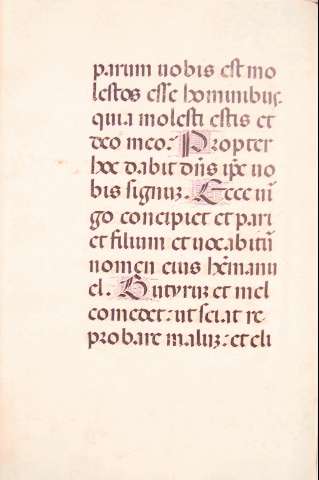 parum uobis est mo
lestos esse hominibus
quia molesti estis et
deo meo: Propter
hoc dabit dñs ip̃e uo
bis signuȝ. Ecce uir̃
go concipiet et pari
et filium et uocabitũ
nomen eius hẽmanu
el. Butyruȝ et mel
comedet: ut sciat re
probare maluȝ: et eli